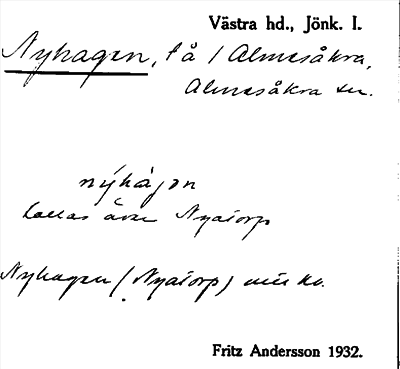 Västra hd., Jönk. l.
Nyhagen, t å / Almesåkra,
Almesåkra sn.
nýhàgən
kallas även Nyatorp
Nyhagen (Nyatorp)
Fritz Andersson 1932.